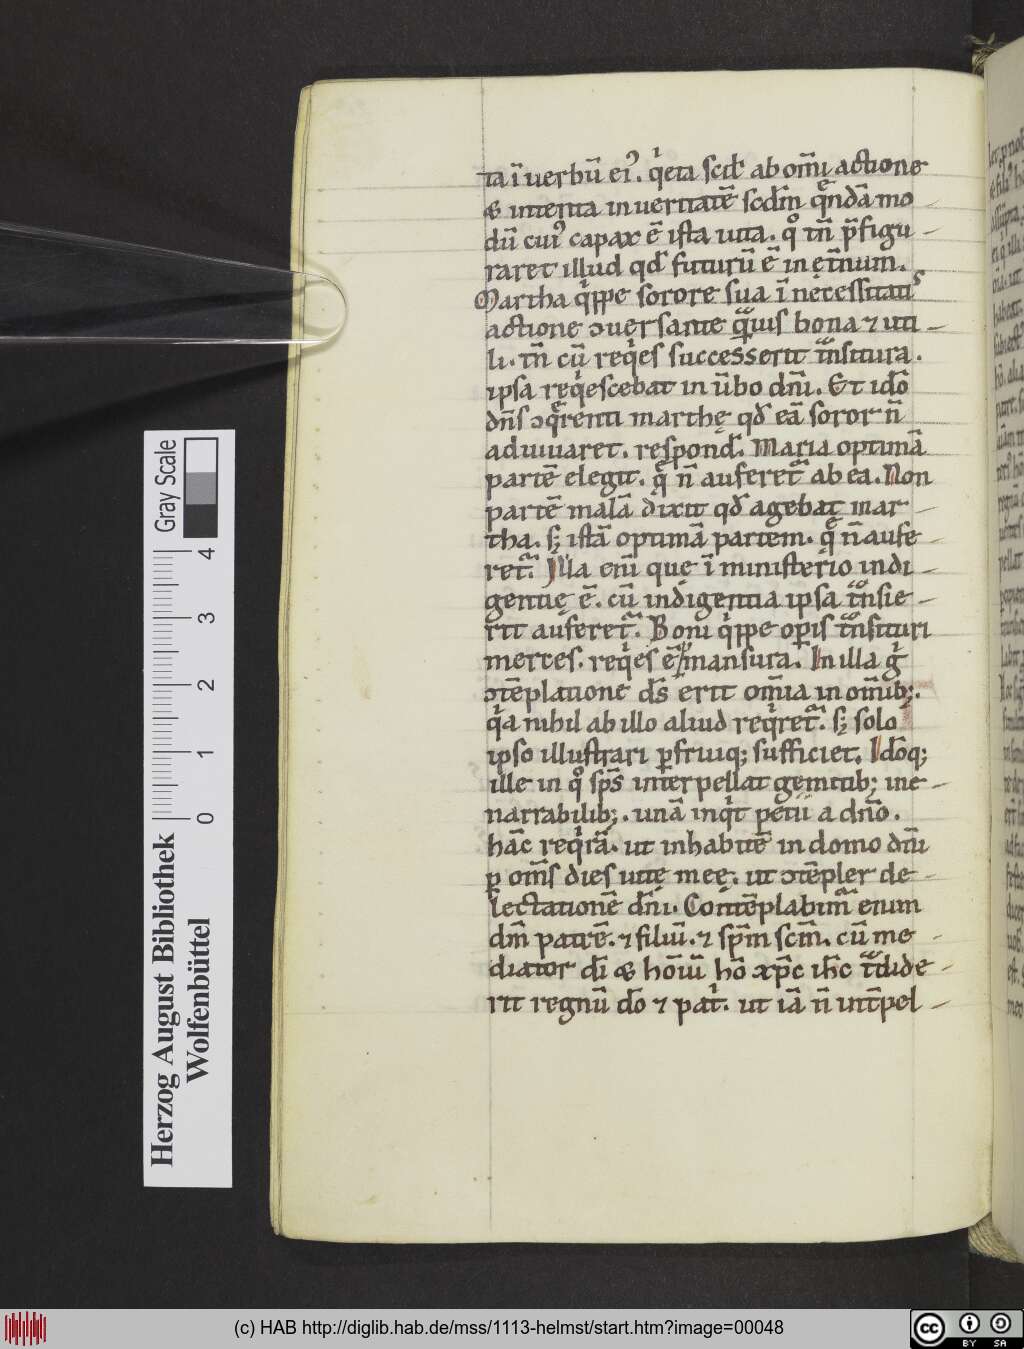 ta ī uerbū ei᾿. q̇eta scd̄ ab om̄i actione
& intenta in ueritatē scdm̄ quēndā mo
dū cui᾿ capax ē ista uita. qͦ tn̄ p̄figu
raret illud qd̄ futurū ē in et̄num.
Martha q̇ppe sorore sua ī necessitatis
actione ɔuersante quamuis bona ⁊ uti
li. tn̄ cū req̇es successerit tͣnsitura.
ipsa req̇escebat in ūbo dn̄i. Et idō
dn̄s ɔqͤrenti marthę qd̄ eā soror n̄
adiuuaret. respond̄. Maria optimā
partē elegit. qͤ n̄ auferetͬ ab ea. Non
partē malā dixit qd̄ agebat mar
tha. s; istā optimā partem. qͤ n̄ aufe
retͬ. Illa eni̅ que ī ministerio indi
gentię ē. cū indigentia ipsa tͣnsie
rit auferetͬ. Boni q̇ppe op̲is tͣnsituri
merces. req̇es ē p̱mansura. In illa g̊
ɔtēplatione ds̄ erit om̄ia in om̄ib;.
q̇a nihil ab illo aliud req̇retͬ. s; solo
ipso illustrari p̲fruiq; sufficiet. Idōq;
ille in qͦ sps̄ interpellat gemitib; ine
narrabilib;. unā inq̇t petii a dnō.
hāc req̇rā. ut inhabitē in domo dn̄i
p̲ om̄s dies uitę meę. ut ɔtēpler de
lectationē dn̄i. Contēplabimͬ enim
dm̄ patrē. ⁊ filiū. ⁊ sp̄m scm̄. cū me
diator di̅ & hōiū hō xp̄c ih̄c tͣdide
rit regnū dō ⁊ pat̍. ut iā n̄ int̄pel
Herzog August Bibliothek
Wolfenbüttel
0 1 2 3 4
Gray Scale
(c) HAB http://diglib.hab.de/mss/1113-helmst/start.htm?image=00048
cc BY SA